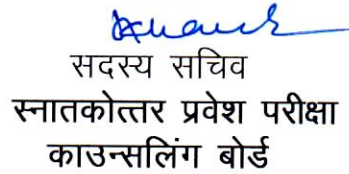 सदस्य सचिव
स्नातकोत्तर प्रवेश परीक्षा
काउन्सलिंग बोर्ड